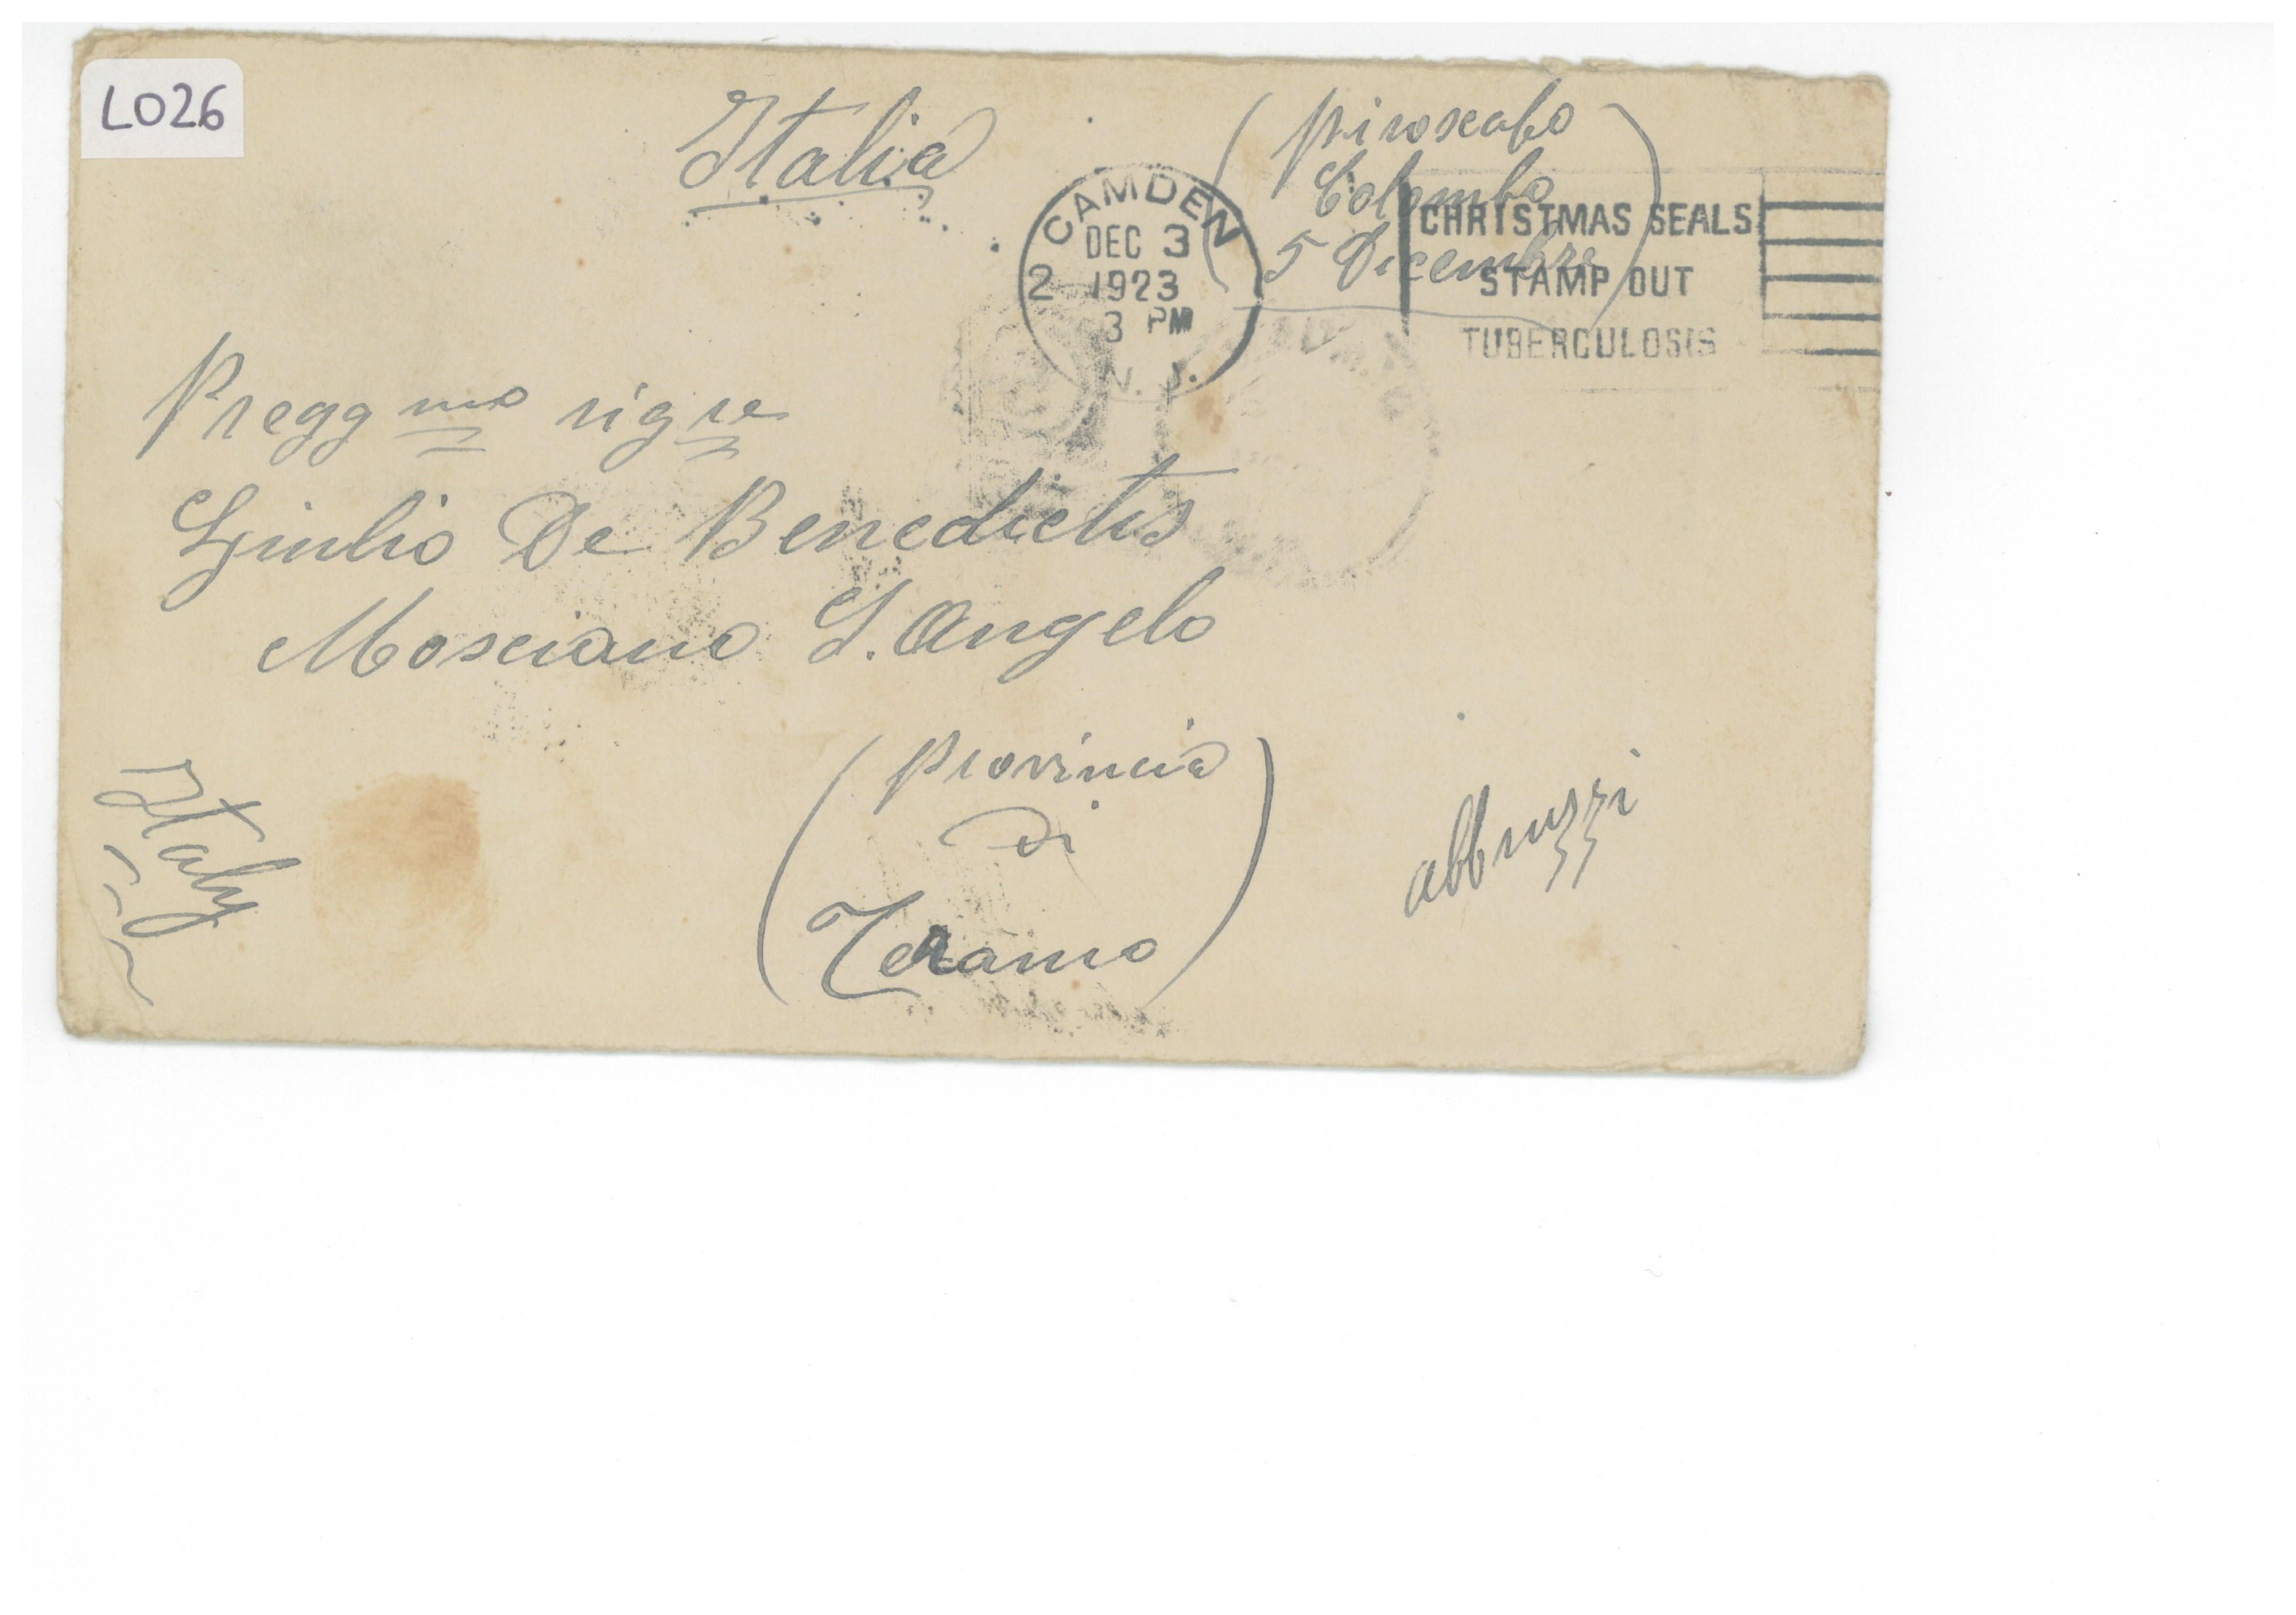 L026
Italia
(piroscafo
Colombo
5 Dicembre)
2 CAMDEN N.J.
DEC 3
1923
3 PM
CHRISTMAS SEALS
STAMP OUT
TUBERCULOSIS
Pregg mo sig re
Giulio De Benedictis
Mosciano S. Angelo
(provincia
di
Teramo)
abbruzzi
Italy